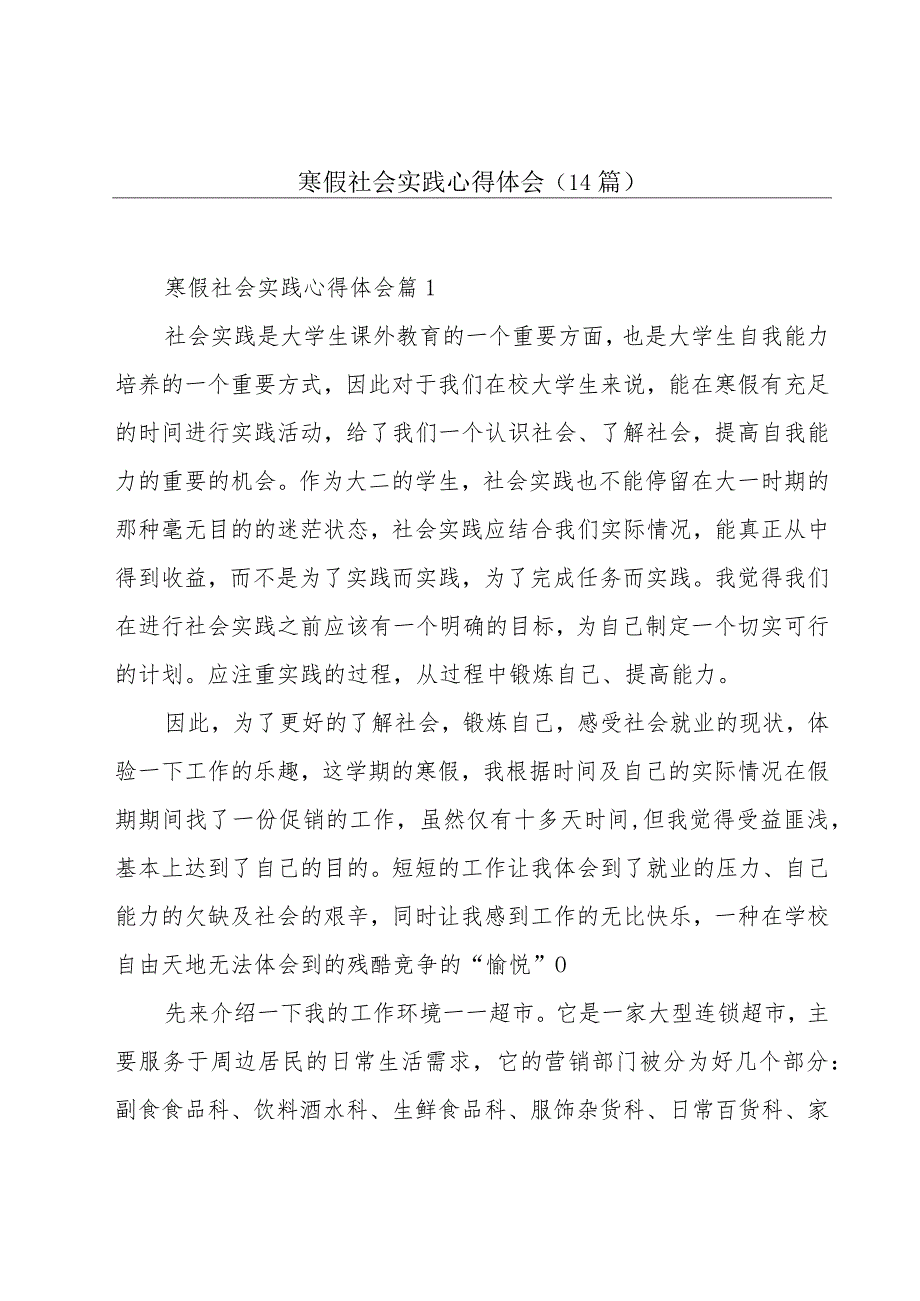 寒假社会实践心得体会（14 篇）
寒假社会实践心得体会篇 1
社会实践是大学生课外教育的一个重要方面，也是大学生自我能力
培养的一个重要方式，因此对于我们在校大学生来说，能在寒假有充足
的时间进行实践活动，给了我们一个认识社会、了解社会，提高自我能
力的重要的机会。作为大二的学生，社会实践也不能停留在大一时期的
那种毫无目的的迷茫状态，社会实践应结合我们实际情况，能真正从中
得到收益，而不是为了实践而实践，为了完成任务而实践。我觉得我们
在进行社会实践之前应该有一个明确的目标，为自己制定一个切实可行
的计划。应注重实践的过程，从过程中锻炼自己、提高能力。
因此，为了更好的了解社会，锻炼自己，感受社会就业的现状，体
验一下工作的乐趣，这学期的寒假，我根据时间及自己的实际情况在假
期期间找了一份促销的工作，虽然仅有十多天时间,但我觉得受益匪浅，
基本上达到了自己的目的。短短的工作让我体会到了就业的压力、自己
能力的欠缺及社会的艰辛，同时让我感到工作的无比快乐，一种在学校
自由天地无法体会到的残酷竞争的“愉悦”0
先来介绍一下我的工作环境一一超市。它是一家大型连锁超市，主
要服务于周边居民的日常生活需求，它的营销部门被分为好几个部分：
副食食品科、饮料酒水科、生鲜食品科、服饰杂货科、日常百货科、家